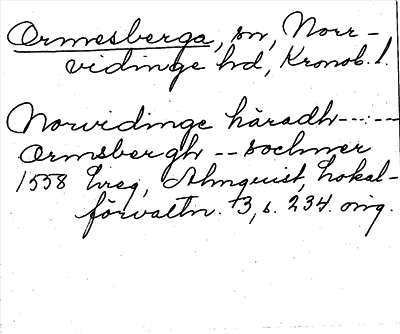 Ormesberga, sn, Norr-
vidinge hd, Kronob. l.
Norvidinge häradh --:--
Ormsbergh -- sochner
1558 hreg, Almquist, Lokal-
förvaltn. 3, s. 234. orig.